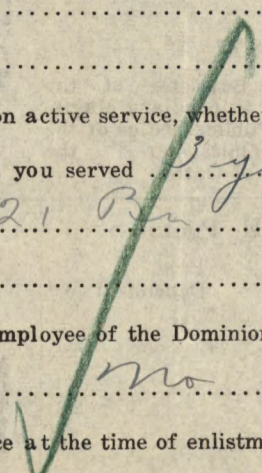 on active service, whethe
you served ..... 3 y
21 Bn
mployee of the Dominion
No
ce at the time of enlistm